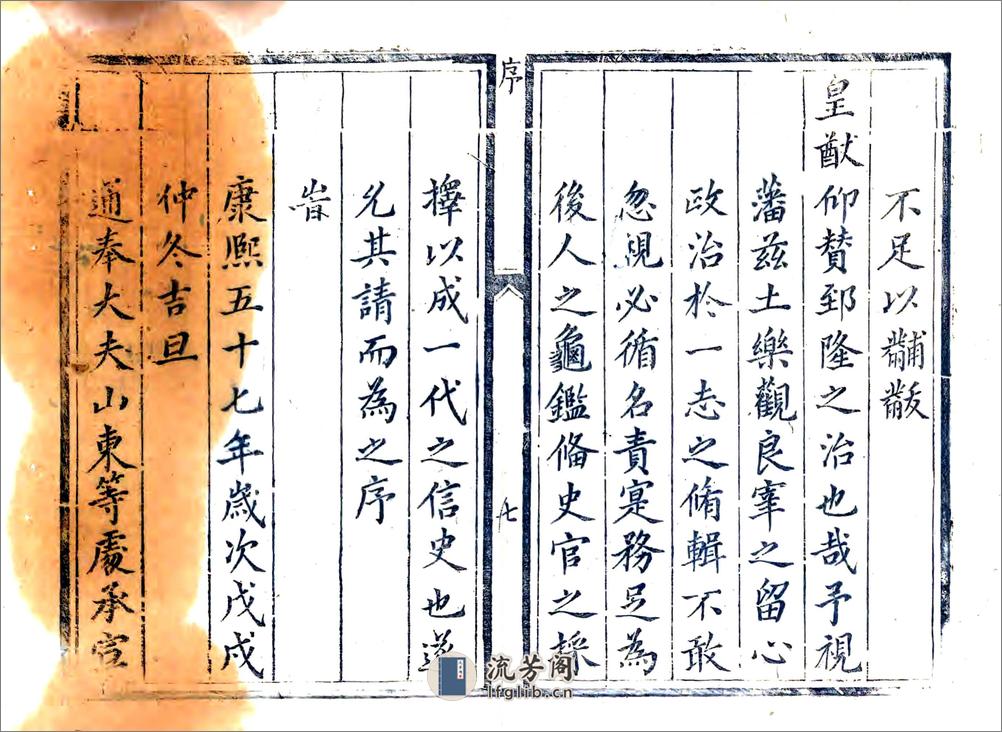 不足以黼黻
皇猷仰贊郅隆之治也哉予視
藩茲土樂觀良宰之留心
政治於一志之脩輯不敢
忽視必循名責寔務足為
後人之龜鑑俻史官之採
序
七
擇以成一代之信史也遂
允其請而為之序
旹
康熙五十七年歲次戊戌
仲冬吉旦
通奉大夫山東等處承宣
流芳阁
lfglib.cn